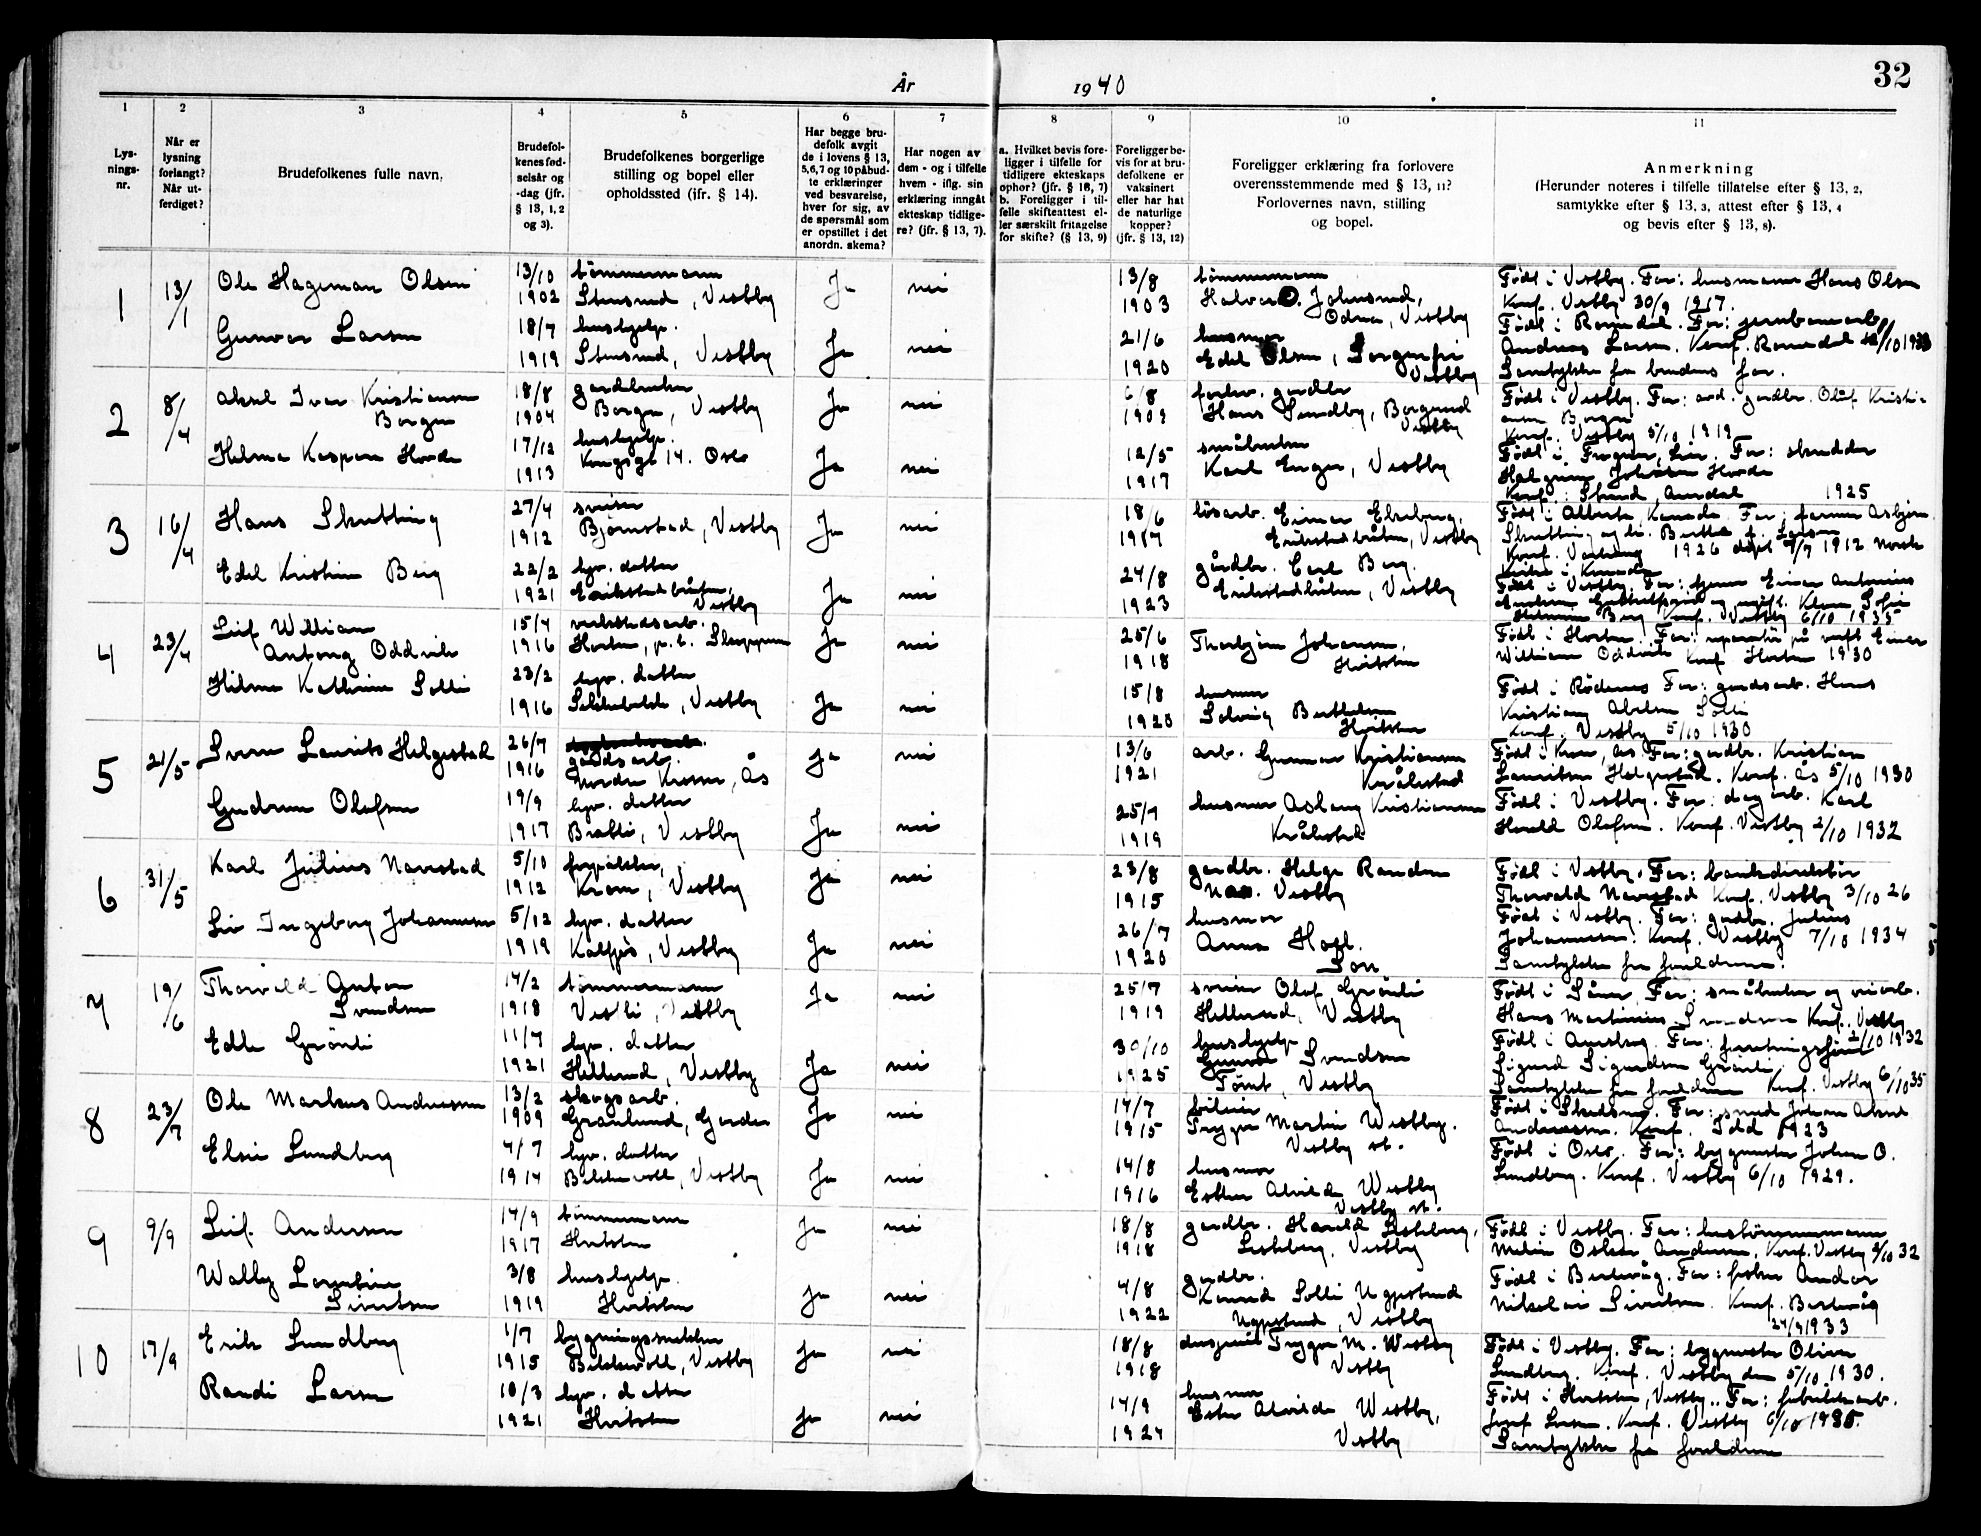 32
År 1940
1
2
3
4
5
6
7
8
9
10
11
Lys-
nings-
nr.
Når er
lysning
forlangt?
Når ut-
ferdiget?
Brudefolkenes fulle navn.
Brudefol-
kenes fød-
selsår og
-dag (jfr.
§ 13, 1, 2
og 3).
Brudefolkenes borgerlige
stilling og bopel eller
opholdssted (jfr. § 14).
Har begge bru-
defolk avgit
de i lovens § 13,
5,6,7 og 10 påbud-
te erklæringer
ved besvarelse,
hver for sig, av
de spørsmål som
er opstillet i det
anordn. skema?
Har nogen av
dem - og i tilfelle
hvem - iflg. sin
erklæring inngåt
ekteskap tidlige-
re? (jfr. § 13, 7).
a. Hvilket bevis fore-
ligger i tilfelle for
tidligere ekteskaps
ophør? (jfr. § 16, 7)
b. Foreligger i til-
felle skifteattest el-
ler særskilt fritagelse
for skifte? (§ 13, 9)
Foreligger be-
vis for at bru-
defolkene er
vaksinert
eller har hat
de naturlige
kopper?
(jfr. § 13, 12)
Foreligger erklæring fra forlovere
overensstemmende med § 13, 11?
Forlovernes navn, stilling
og bopel.
Anmerkning
(Herunder noteres i tilfelle tillatelse efter § 13, 2,
samtykke efter § 13, 3, attest efter § 13, 4
og bevis efter § 13, 8).
1
13/1
Ole Hageman Olsen
13/10
1902
tømmermann
Stensrud, Vestby
Ja
nei
13/8
1903
tømmermann
Johnsrud,
Vestby
Født i Vestby. Far: husmann Hans Olsen
Konf. Vestby 30/9 1917.
Gunvor Larsen
18/7
1919
hushjelp.
Stensrud, Vestby
Ja
nei
21/6
1920
husmor
Edel Olsen, Sorgenfri
Vestby
Født i Romedal. Far: jernbanearb.
Andreas Larsen. Konf. Romedal
Samtykke fra brudens far.
2
8/4
Aksel Ivar Kristiansen
Borgen
18/8
1904
gardbruker
Borgen, Vestby
Ja
nei
6/8
1909
gardbr
Hans Sundby, Borgund
Vestby
Født i Vestby. Far: gardbr. Oluf Kristi-
ansen Borgen
Konf. Vestby 5/10 1919
Hilma Kaspara Hovde
17/12
1913
hushjelp.
Kongsgt 14. Oslo
Ja
nei
12/5
1917
småbruker
Karl Enger, Vestby
Født i Frogner, Lier. Far: skredder
1925
3
16/4
Hans Skutting
27/4
1912
sveiser
Bjørnstad, Vestby
Ja
nei
18/6
1917
løsarb. Einar Ekeberg.
Erikstadbråten, Vestby
Født i Alberta, Kanada Far: farmer Asbjørn
Edel Kristine Berg
22/2
1921
hjv. datter
Erikstadbråten,
Vestby
Ja
nei
24/8
1923
gårdbr. Carl Berg.
Erikstadbråten, Vestby
Berg Konf. Vestby 6/10 1935
4
23/4
Leif William
Antony Oddvik
15/4
1916
verkstedsarb.
Horten, p. t. Sleppen
Ja
nei
25/6
1918
Thorbjørn Johansen,
Hvitsten
Født i Horten. Far: reparatør på verft Einar
William Oddvik Konf Horten 1930
Hilma Kathrine Solli
23/2
1916
hjv. datter
Vestby
Ja
nei
15/8
1920
husmor
Solveig Berthelsen
Hvitsten
Født i Rødenes Far: gardsarb. Hans
Kristian Abelsen Solli
Konf. Vestby 5/10 1930
5
21/5
Sven Laurits Helgestad
26/7
1916
gardsarb.
Nordre Kroer, Ås
Ja
nei
13/6
1921
arb. Gunnar Kristiansen
Kråkstad
Født i Kroer, Ås. Far: gardbr. Kristian
Lauritsen Helgestad. Konf. Ås 5/10 1930
Gudrun Olofsen
19/9
1917
hjv. datter
Bratli, Vestby
Ja
nei
25/7
1919
husmor Aslaug Kristiansen
Kråkstad
Født i Vestby. Far: dagarb. Karl
Harald Olofsen. Konf. Vestby 2/10 1932
6
31/5
Karl Julius Navestad
5/10
1912
forpakter,
Krom, Vestby
Ja
nei
23/8
1915
gardbr. Helge Randem
Nes. Vestby
Født i Vestby. Far: bankdirektør
Thorvald Navestad Konf. Vestby 3/10 26
Liv Ingeborg Johannesen
5/12
1919
hjv. datter
Kalfjøs, Vestby
Ja
nei
26/7
1920
husmor
Anna Hoff.
Son
Født i Vestby. Far: gardbr. Julius
Johannesen. Konf. Vestby 7/10 1934
Samtykke fra foreldrene.
7
19/6
Thorvald Anton
Svendsen
14/2
1918
tømmermann
Vestli, Vestby
Ja
nei
25/7
1919
sveiser Olof Grønli
Hillerud, Vestby
Født i Såner. Far: småbruker og veiarb.
Hans Martinius Svendsen Konf. Vestby
2/10 1932
Edle Grønli
11/7
1921
hjv. datter
Hillerud, Vestby
Ja
nei
30/10
1925
hushjelp
Svendsen
Tomt, Vestby
Sigurd Sigurdsen Grønli.
Samtykke fra foreldrene Konf. Vestby 6/10 35
8
23/7
Ole Markus Andreassen
13/2
1909
skogsarb.
Granlund, Garder
Ja
nei
14/7
1915
bileier
Trygve Martin Westby.
Vestby st.
Født i Skedsmo. Far: smed Johan Aksel
Andreassen. Konf. Idd 1923
Elsie Lundberg
4/7
1914
hjv. datter
Bekkevoll, Vestby
Ja
nei
14/8
1916
husmor
Esther Alvilde Westby
Vestby st.
Født i Oslo. Far: byggmester Johan O.
Lundberg. Konf. Vestby 6/10 1929.
9
9/9
Leif Andersen
14/9
1917
tømmermann
Hvitsten
Ja
nei
18/8
1918
gardbr. Harald Labeberg,
Vestby
Født i Vestby. Far: hustømmermann
Oskar Andersen, Konf. Vestby 2/10 32
Wally Lovise
Sivertsen
3/8
1919
hushjelp.
Hvitsten
Ja
nei
4/8
1922
gardbr.
Konrad Solli Ugpstad
Vestby
Født i Berlevåg. Far: fisker Andor
Nikolai Sivertsen. Konf. Berlevåg
24/9 1933
10
17/9
Erik Lundberg
1/7
1915
bygningssnekker
Bekkevoll, Vestby
Ja
nei
18/8
1918
Trygve M. Westby
Vestby
Født i Vestby. Far: byggmester Oliver
Lundberg. Konf. Vestby den 5/10 1930.
Randi Larsen
10/3
1921
hjv. datter
Hvitsten
Ja
nei
14/9
1924
husmor
Ester Alvilde Westby,
Vestby
Født i Hvitsten, Vestby. Far: fabrikkarb.
Josef Larsen. Konf. Vestby 6/10 1935.
Samtykke fra foreldrene